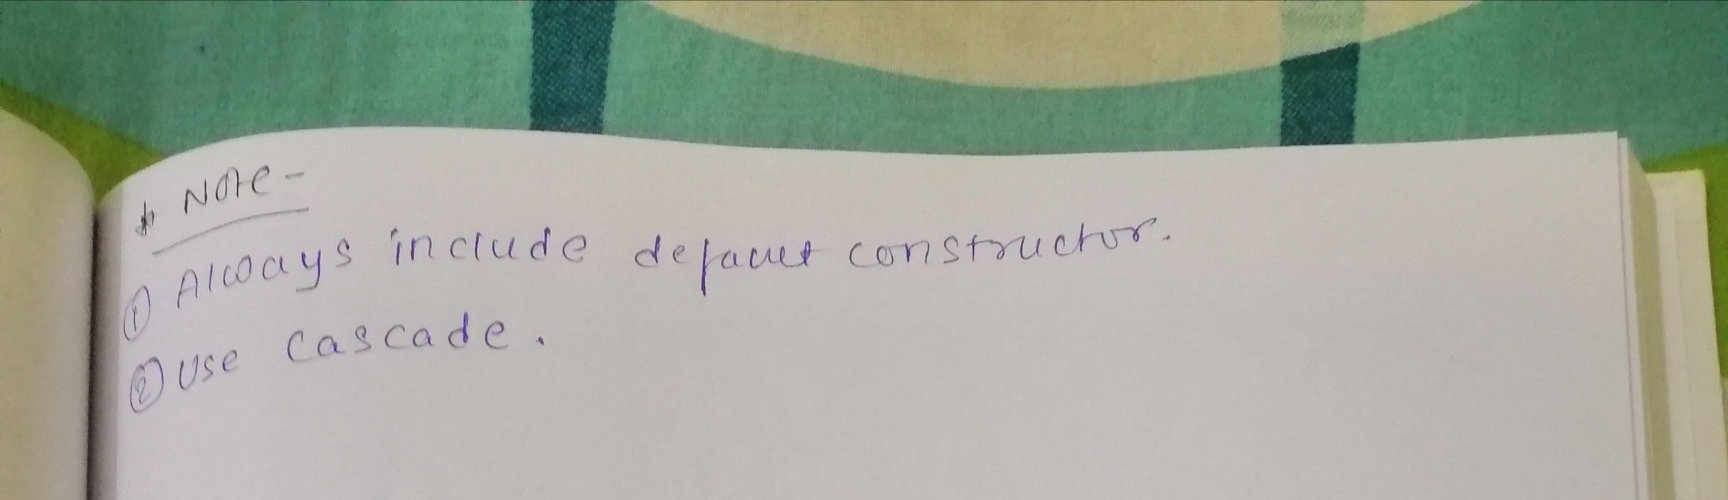 * Note -
① Always include default constructor.
② Use Cascade.